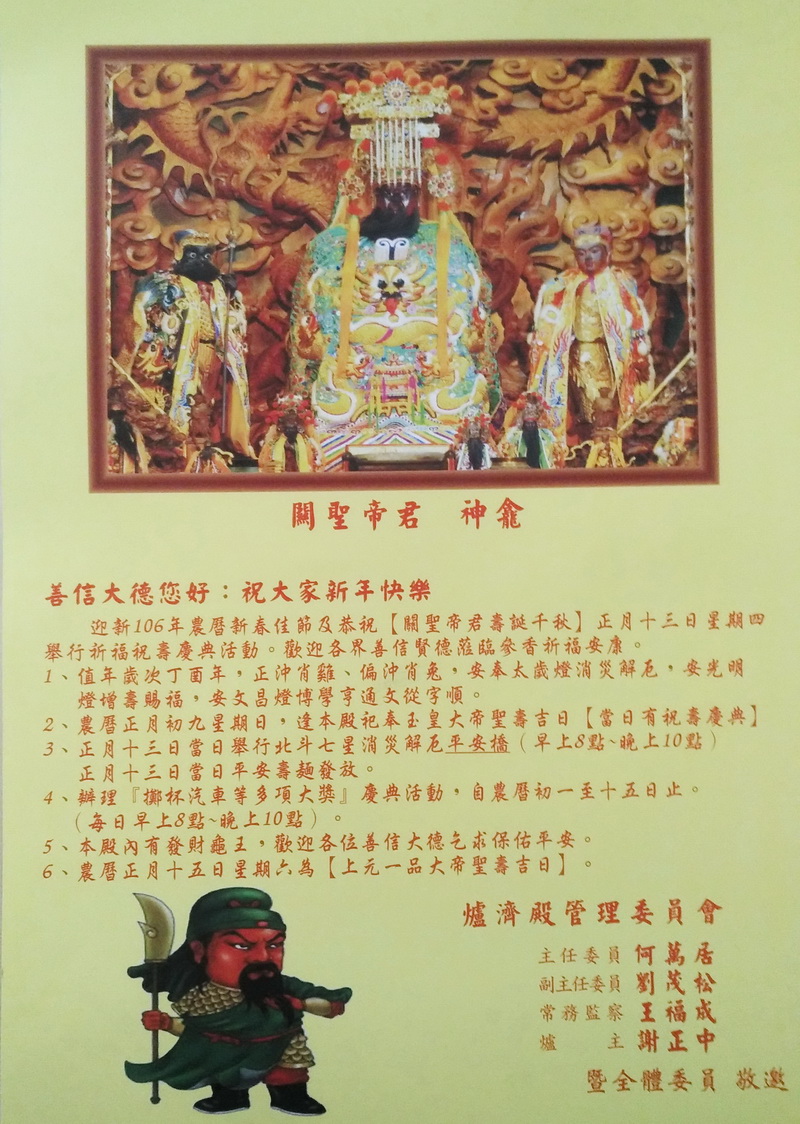 關聖帝君　神龕
善信大德您好：祝大家新年快樂
迎新106年農曆新春佳節及恭祝【關聖帝君壽誕千秋】正月十三日星期四
舉行祈福祝壽慶典活動。歡迎各界善信賢德蒞臨參香祈福安康。
1、值年歲次丁酉年，正沖肖雞、偏沖肖兔，安奉太歲燈消災解厄，安光明
燈增壽賜福，安文昌燈博學亨通文從字順。
2、農曆正月初九星期日，逢本殿祀奉玉皇大帝聖壽吉日【當日有祝壽慶典】
3、正月十三日當日舉行北斗七星消災解厄平安橋（早上8點~晚上10點）
正月十三日當日平安壽麵發放。
4、辦理『擲杯汽車等多項大獎』慶典活動，自農曆初一至十五日止。
（每日早上8點~晚上10點）。
5、本殿內有發財龜王，歡迎各位善信大德乞求保佑平安。
6、農曆正月十五日星期六為【上元一品大帝聖壽吉日】。
爐濟殿管理委員會
主任委員 何萬居
副主任委員 劉茂松
常務監察 王福成
爐　　主 謝正中
暨全體委員 敬邀